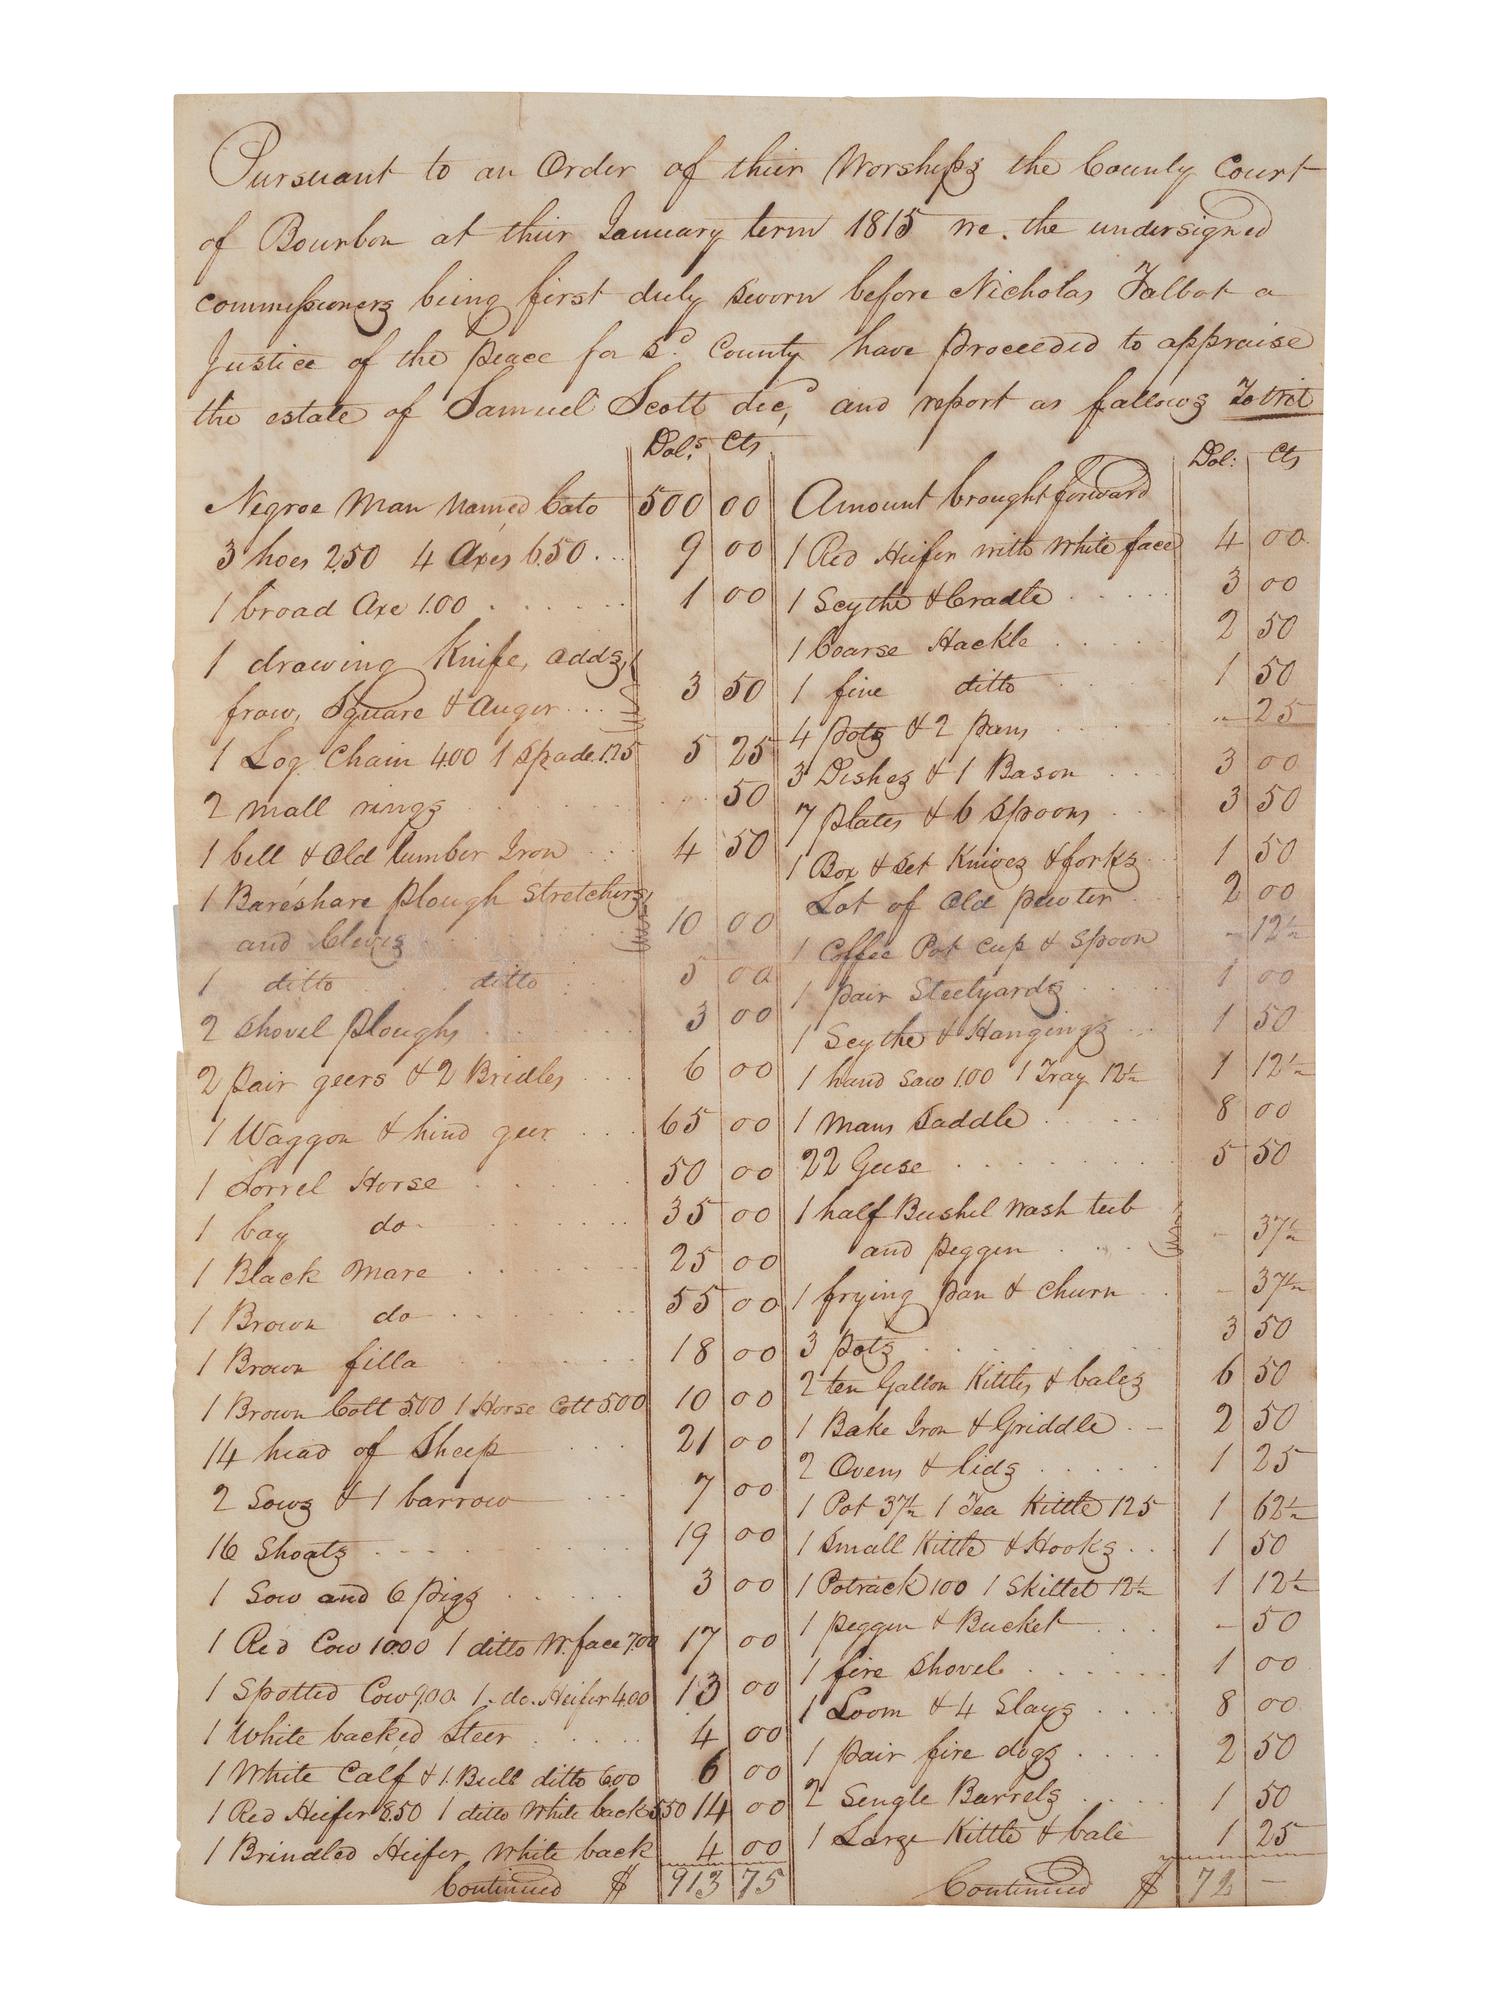 Pursuant to an Order of thier Worships the County Court
of Bourbon at thier January term 1815 we. the undersigned
commissioners being first duly sworn before Nicholas Talbot a
Justice of the Peace for sd. County have proceeded to appraise
the estate of Samuel Scott decd, and report as fallows Towit
Dols. Cts
Negroe Man named Cato 500 00
3 hoes 2.50 4 Axes 6.50 9 00
1 broad Axe 1.00 1 00
1 drawing Knife, adds,
frow, Square & Auger 3 50
1 Log Chain 4.00 1 Spade 1.25 5 25
2 mall rings 50
1 bell & Old lumber Iron 4 50
1 Bareshare plough Stretchers,
and Clevis 10 00
1 ditto ditto 5 00
2 Shovel ploughs 3 00
2 pair geers & 2 Bridles 6 00
1 Waggon & hind geer 65 00
1 Sorrel Horse 50 00
1 bay do 35 00
1 Black mare 25 00
1 Brown do 55 00
1 Brown filla 18 00
1 Brown Colt 5.00 1 Horse Colt 5.00 10 00
14 head of Sheep 21 00
2 Sows & 1 barrow 7 00
16 Shoats 19 00
1 Sow and 6 pigs 3 00
1 Red Cow 10.00 1 ditto W. face 7.00 17 00
1 Spotted Cow 9.00 1. do. Heifer 4.00 13 00
1 White backed Steer 4 00
1 White Calf & 1. Bull ditto 6.00 6 00
1 Red Heifer 8.50 1 ditto White back 5.50 14 00
1 Brindled Heifer White back 4 00
Continued $ 913 75
Dol: Cts
Amount brought forward
1 Red Heifer with White face 4 00
1 Scythe & Cradle 3 00
1 Coarse Hackle 2 50
1 fine ditto 1 50
4 pots & 2 pans - 25
3 Dishes & 1 Bason 3 00
7 plates & 6 Spoons 3 50
1 Box & Set Knives & forks 1 50
Lot of Old pewter 2 00
1 Coffee Pot cup & Spoon - 12½
1 pair Steelyards 1 00
1 Scythe & Hangings 1 50
1 hand Saw 1.00 1 Tray 12½ 1 12½
1 mans Saddle 8 00
22 Geese 5 50
1 half Bushel Wash tub
and peggen - 37½
1 frying pan & Churn - 37½
3 pots 3 50
2 ten Gallon Kittles & bales 6 50
1 Bake Iron & Griddle 2 50
2 Ovens & lids 1 25
1 Pot 37½ 1 Tea Kittle 1 25 1 62½
1 Small Kittle & Hooks 1 50
1 Potrack 1 00 1 Skillet 12½ 1 12½
1 peggen & Bucket - 50
1 fire Shovel 1 00
1 Loom & 4 Slays 8 00
1 pair fire dogs 2 50
2 Sengle Barrels 1 50
1 Large Kittle & bale 1 25
Continued $ 72 -